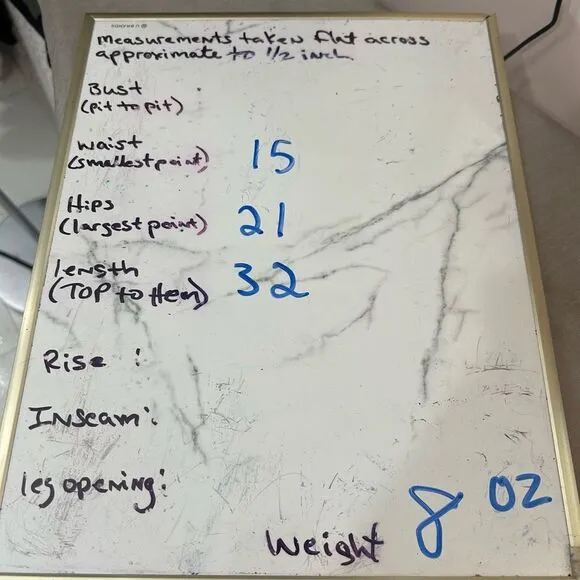 Measurements taken flat across
approximate to 1/2 inch
Bust
(pit to pit)
Waist
(smallest point) 15
Hips
(largest point) 21
length
(TOP to Hem) 32
Rise :
Inseam:
leg opening:
Weight 8 OZ